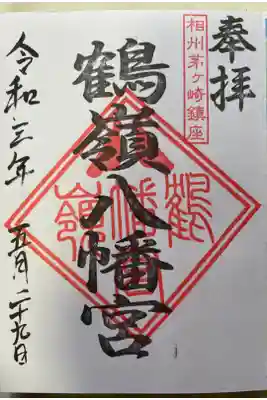 奉拝
相州茅ヶ崎鎮座
鶴嶺八幡宮
鶴嶺八幡宮
令和三年 五月二十九日